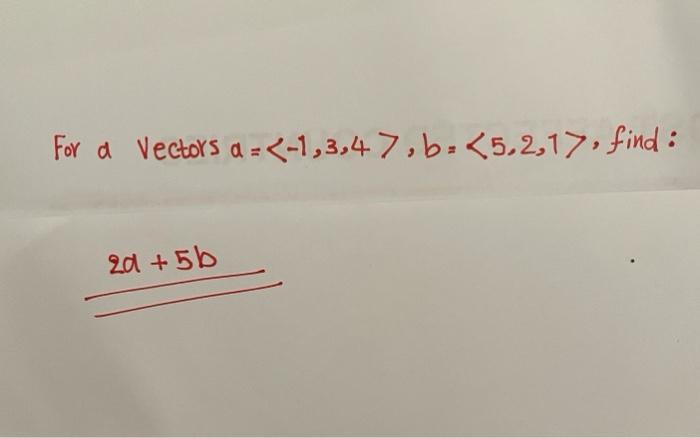 For a Vectors a = <-1,3,4>, b = <5,2,1>, find:
2a + 5b